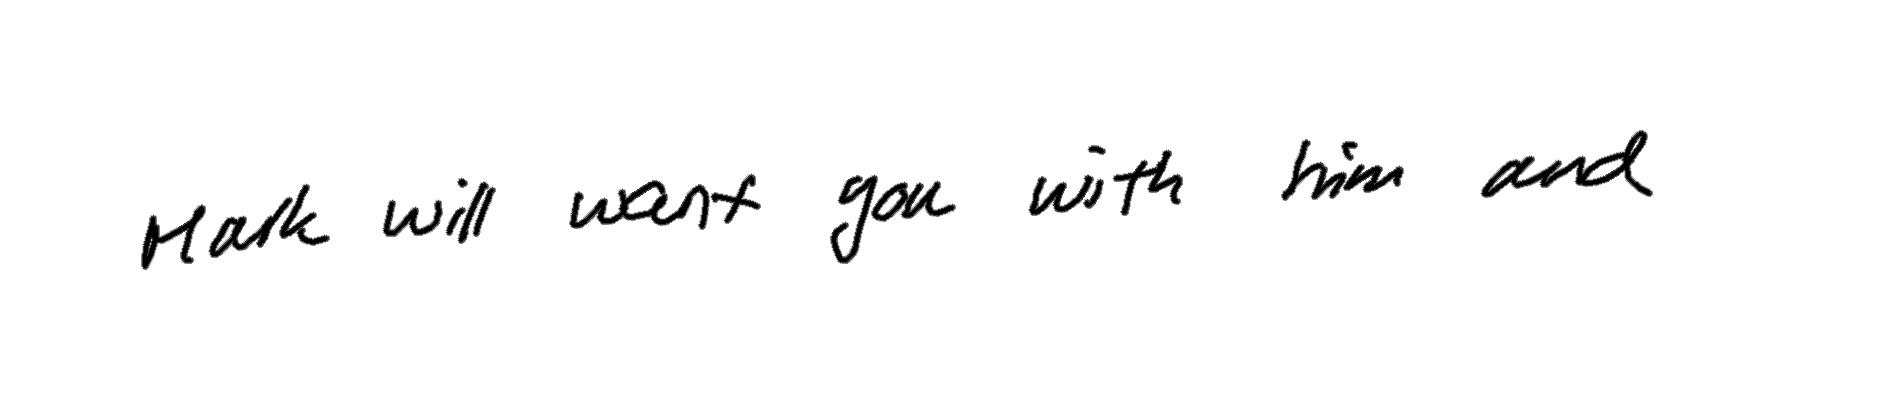 Mark will want you with him and